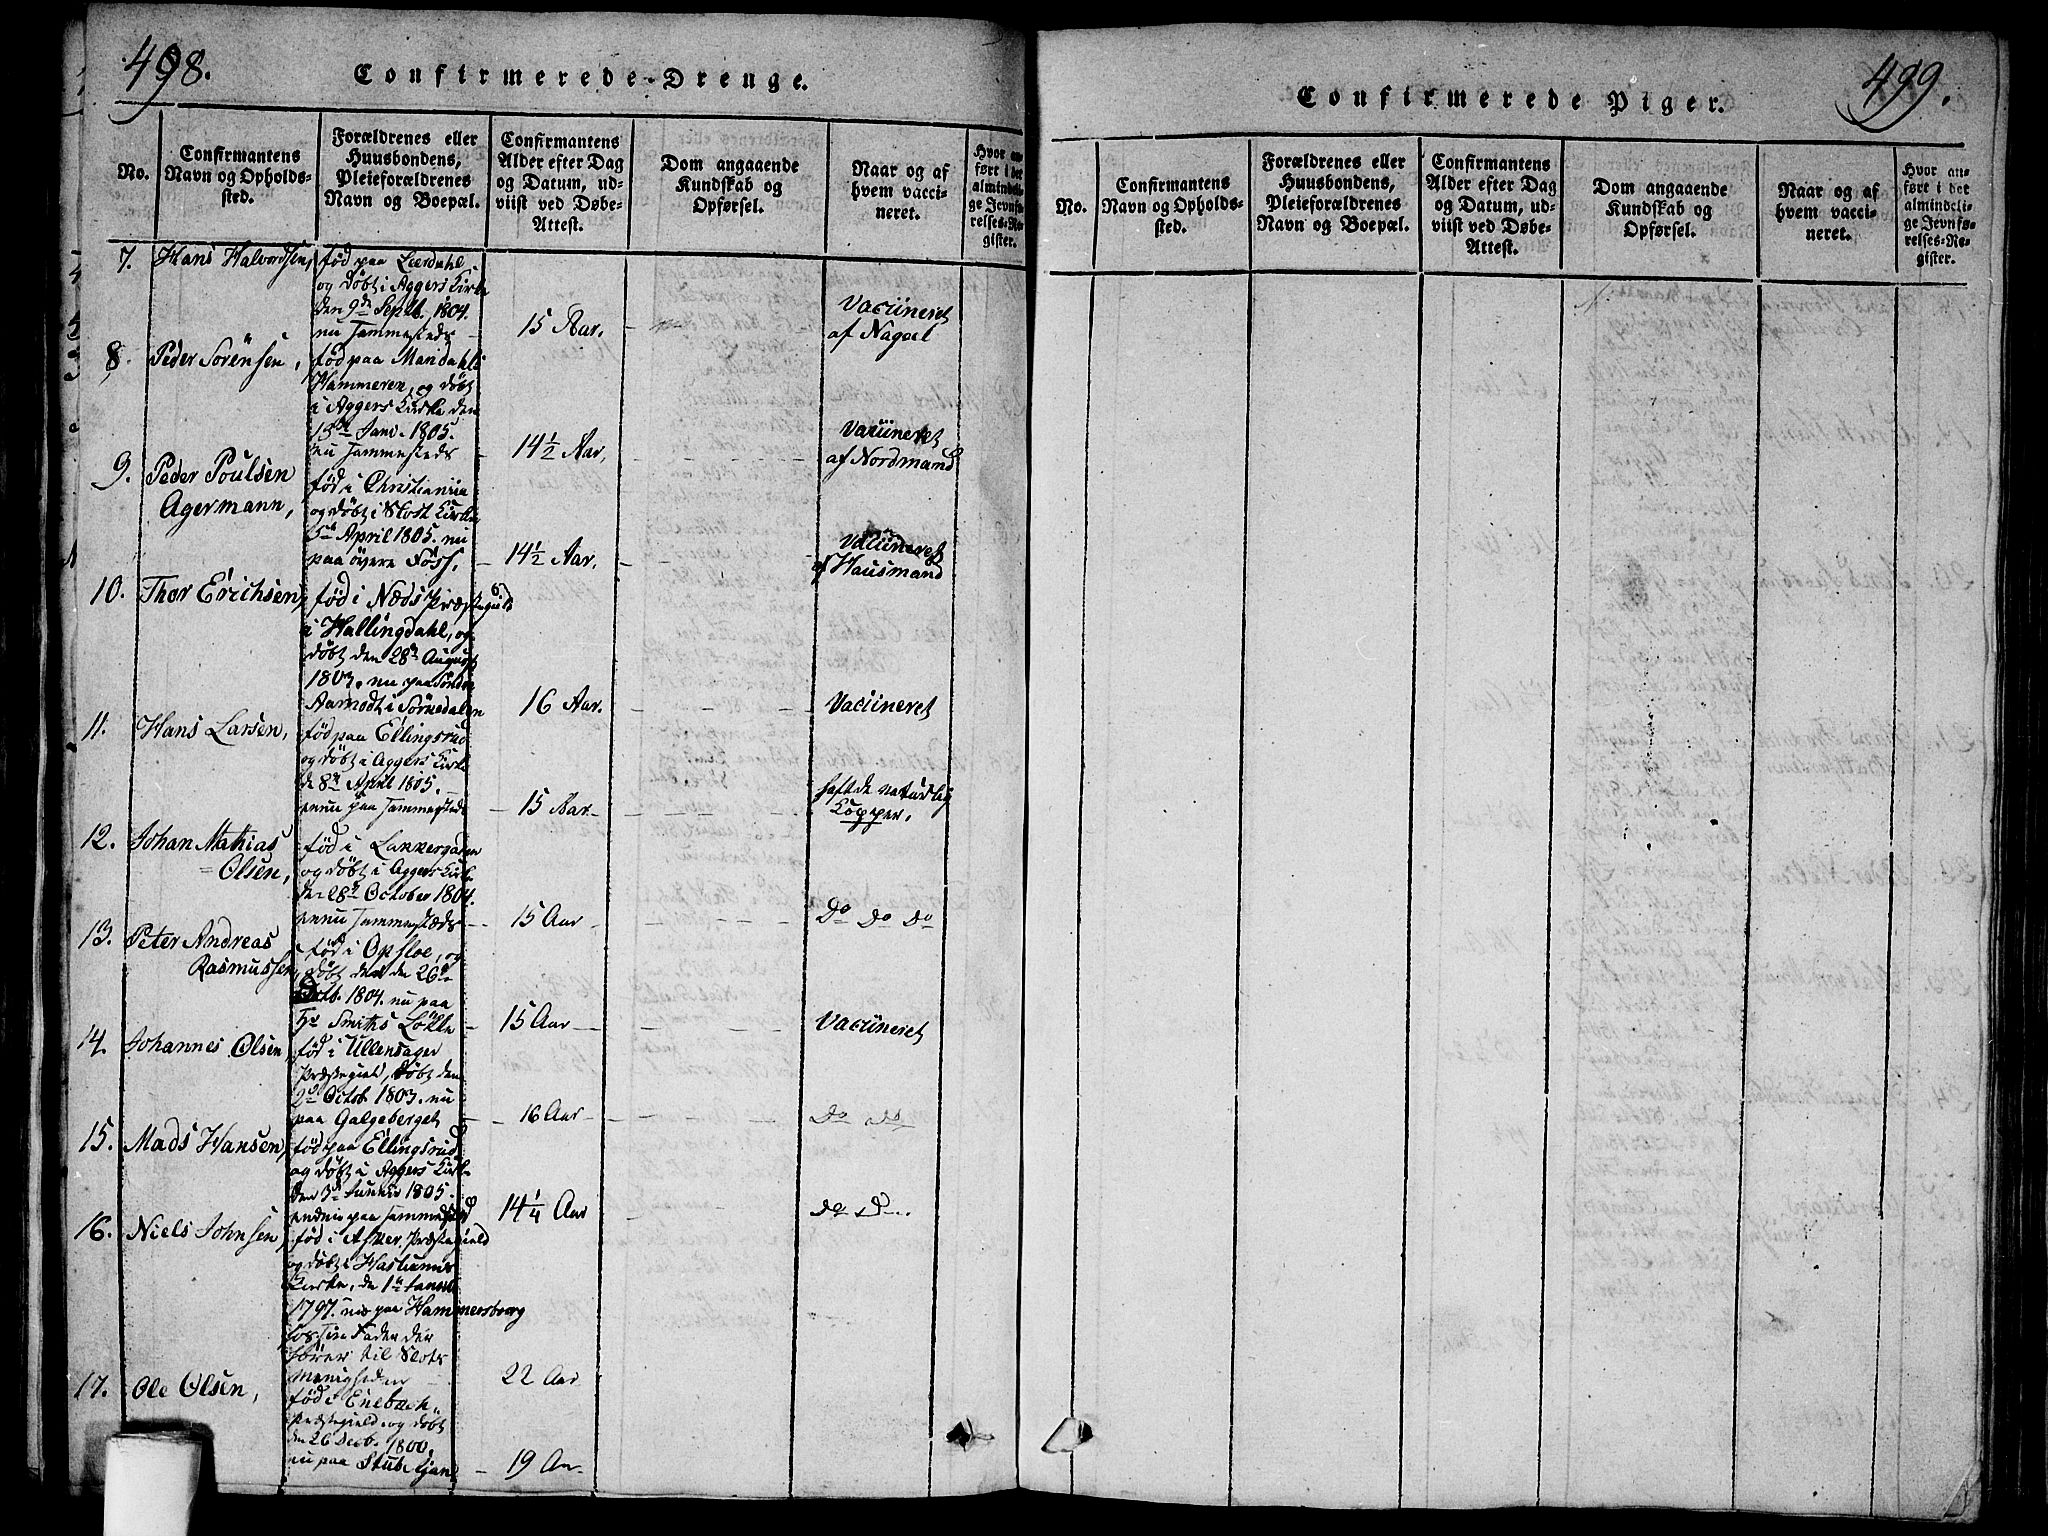 498.
Confirmerede-Drenge.
No.
Confirmantens
Navn og Opholds-
sted.
Forældrenes eller
Huusbondens,
Pleieforældrenes
Navn og Boepæl.
Confirmantens
Alder efter Dag
og Datum, ud-
viist ved Døbe-
Attest.
Dom angaaende
Kundskab og
Opførsel.
Naar og af
hvem vacci-
neret.
Hvor an-
ført i det
almindeli-
ge Jevnfø-
relses-Re-
gister.
7. Hans Halvordsen,
født paa Lærdahl
og døbt i Aggers Kirke
den 9de Septb. 1804.
nu sammesteds
15 Aar.
Vaciineret
af Nagel
8. Peder Sörensen,
født paa Maridahls
Hammeren, og døbt
i Aggers Kirke den
13de Janr. 1805.
nu sammesteds
14 1/2 Aar.
Vaciineret
af Nordmand
9. Peder Poulsen
Agermann,
født i Christiania
og døbt i Slots Kirke
5te April 1805. nu
paa övere Föss.
14 1/2 Aar.
Vaciineret
af Hausmand
10. Thor Erichsen,
født i Næds Præstegield
i Hallingdahl, og
døbt den 28de August
1803. nu paa Söndre
Aamodt i Sörkedalen
16 Aar.
Vaciineret
11. Hans Larsen,
født paa Ellingsrud
og døbt i Aggers Kirke
de 8de April 1805.
ennu paa sammesteds
15 Aar
hafte de naturlig
Kopper.
12. Johan Mathias
Olsen,
født i Lakkergaden
og døbt i Aggers Kirke
den 28de October 1804.
ennu sammesteds
15 Aar
Do Do Do
13. Peter Andreas
Rasmussen,
født i Opsloe, og
døbt den 26de
Octb. 1804. nu paa
Hr Smiths Lökke
15 Aar
Vaciineret
14. Johannes Olsen,
født i Ullensager
Præstegield, døbt den
2de Octob. 1803. nu
paa Galgeberget
16 Aar
Do
15. Mads Hansen,
født paa Ellingsrud
og døbt i Aggers Kirke
den 3de Junii 1805.
paa sammested
14 1/4 Aar
Do
16. Niels Johnsen,
født i Asker Præstegield
og døbt i
Kirke, de 1te Januar
1797. nu paa Hammersborg
hos sin Fader der
hörer til Slots
Menigheden
22 Aar
17. Ole Olsen,
født i Enebach
Præstegield, og døbt
den 26 Decb. 1800.
nu paa Stubeljan
19 Aar
499.
Confirmerede Piger.
No.
Confirmantens
Navn og Opholds-
sted.
Forældrenes eller
Huusbondens,
Pleieforældrenes
Navn og Boepæl.
Confirmantens
Alder efter Dag
og Datum, ud-
viist ved Døbe-
Attest.
Dom angaaende
Kundskab og
Opførsel.
Naar og af
hvem vacci-
neret.
Hvor an-
ført i det
almindeli-
ge Jevnfø-
relses-Re-
gister.